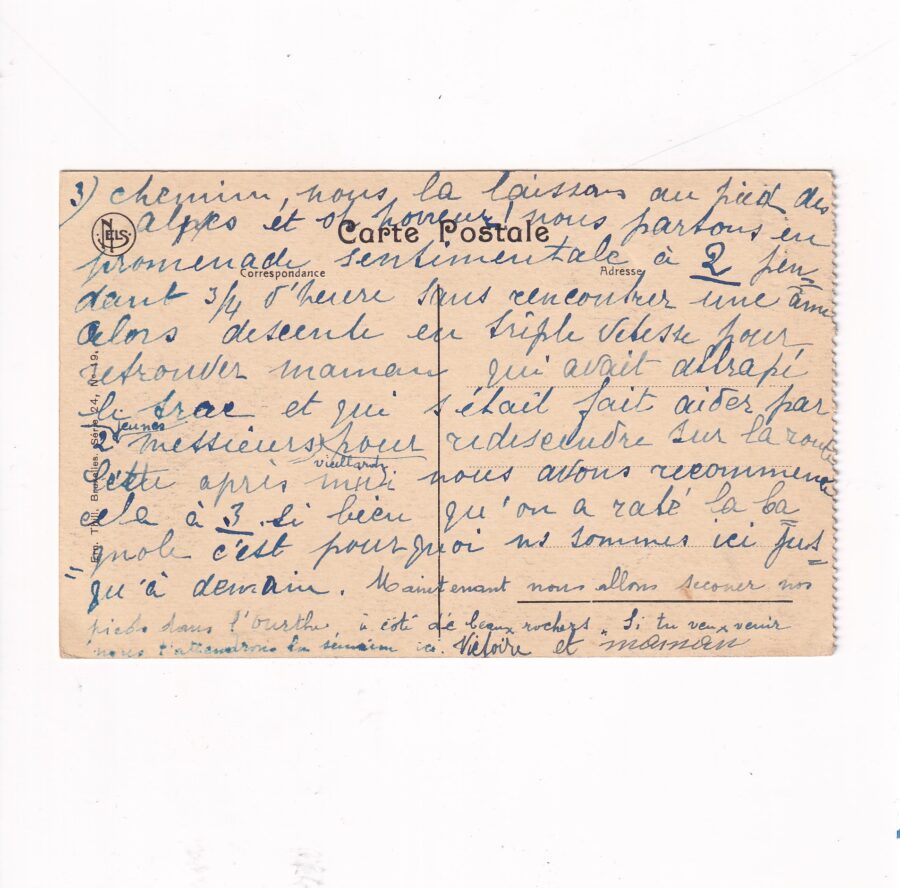 3) chemin, nous la laissons au pied des
Alpes et oh horreur! nous partons en
NELS
Carte Postale
promenade sentimentale à 2 pen-
Correspondance
Adresse
dant 3/4 d'heure sans rencontrer une âme
alors descente en triple vitesse pour
retrouver maman qui avait attrapé
le trac et qui s'était fait aider par
2 jeunes messieurs pour redescendre sur la route
vieillards
Cette après midi nous avons recommencé
cela à 3 si bien qu'on a raté la ba
gnole c'est pourquoi ns sommes ici jus=
"qu'à demain. Maintenant nous allons secouer nos
pieds dans l'Ourthe à côté de beaux rochers. Si tu veux venir
nous t'attendrons la semaine ici. Victoire et maman
Ern. Thill, Bruxelles. Série 24, No 19.